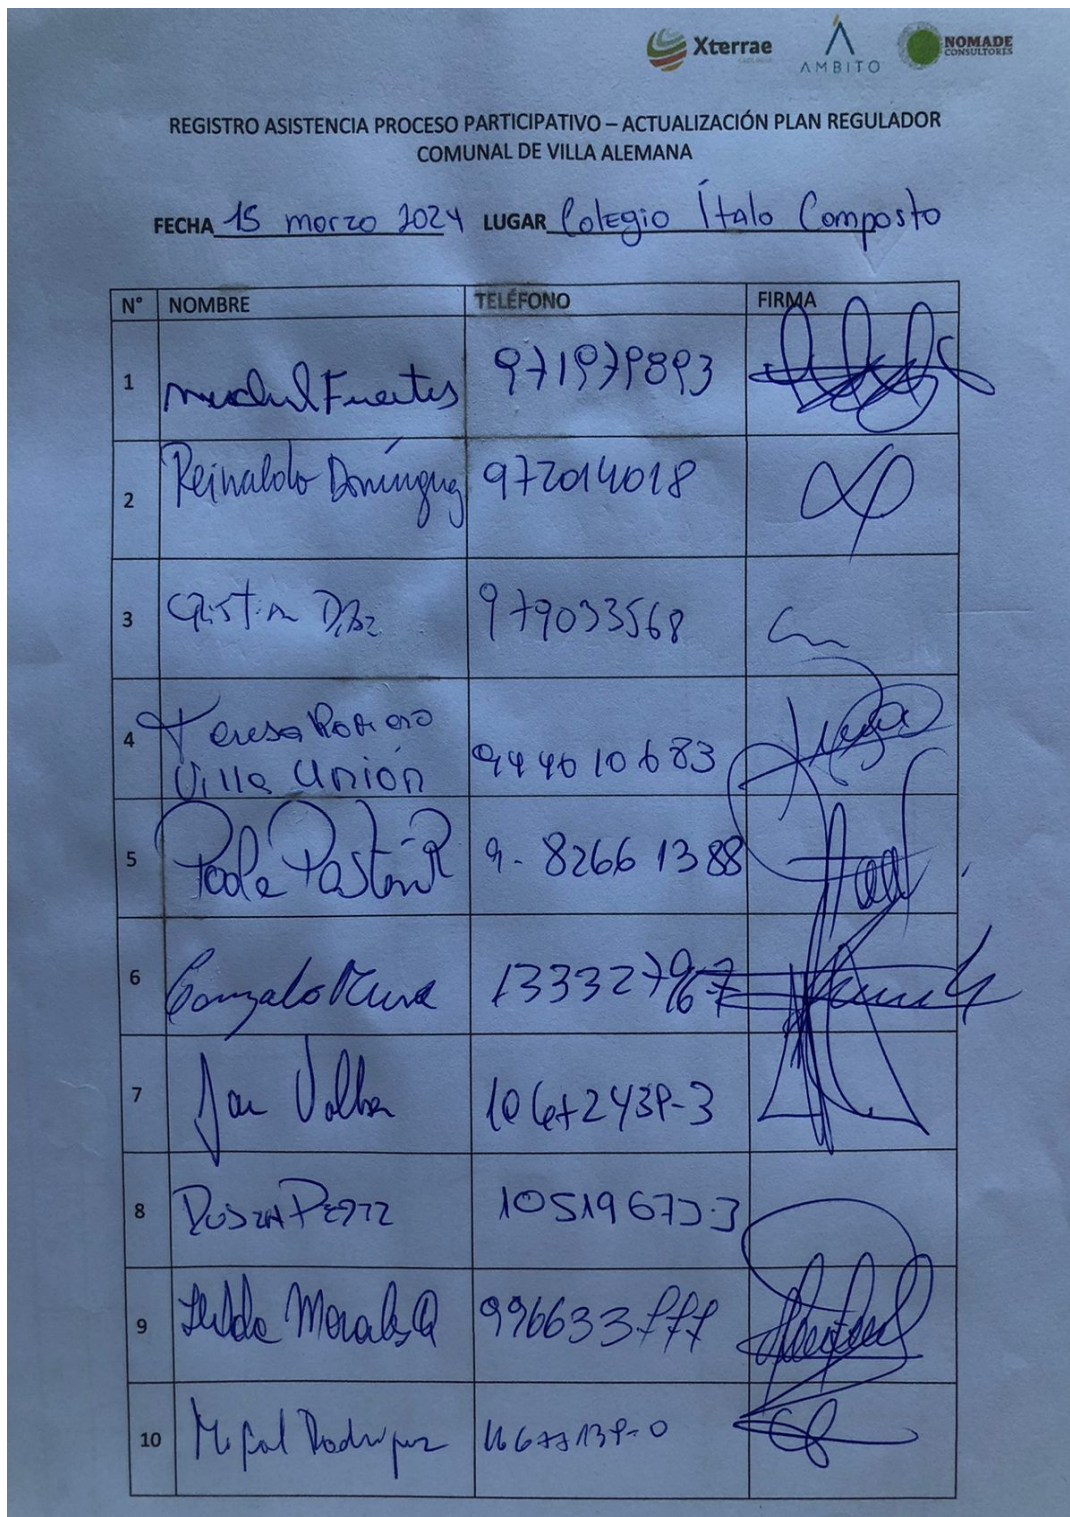 Xterrae
AMBITO
NOMADE
CONSULTORES
REGISTRO ASISTENCIA PROCESO PARTICIPATIVO – ACTUALIZACIÓN PLAN REGULADOR
COMUNAL DE VILLA ALEMANA
FECHA 15 marzo 2024 LUGAR Colegio Ítalo Composto
N° NOMBRE TELÉFONO FIRMA
1 Fuentes 971979893
2 Reinaldo Domínguez 972014018
3 Cristian Díaz 979033568
4 Teresa Romero
Villa Unión 944010683
5 Paola Pastén R 9-8266 1388
6 Gonzalo 13332796-7
7 10672439-3
8 10519673-3
9 Hilda Morales Q 996633777
10 Rodriguez